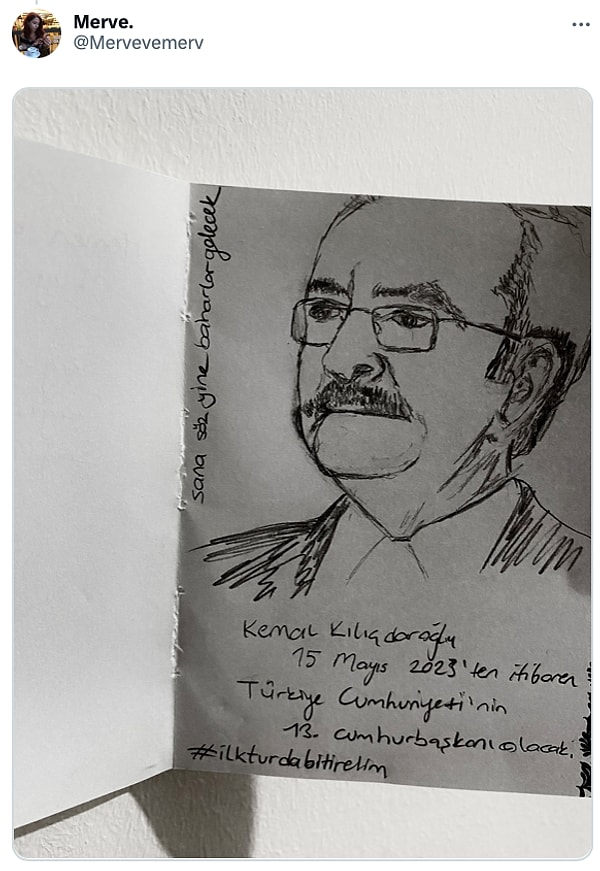 Merve.
@Mervevemerv
sana söz yine baharlar gelecek
Kemal Kılıçdaroğlu
15 Mayıs 2023'ten itibaren
Türkiye Cumhuriyeti'nin
13. cumhurbaşkanı olacak.
#ilkturdabitirelim